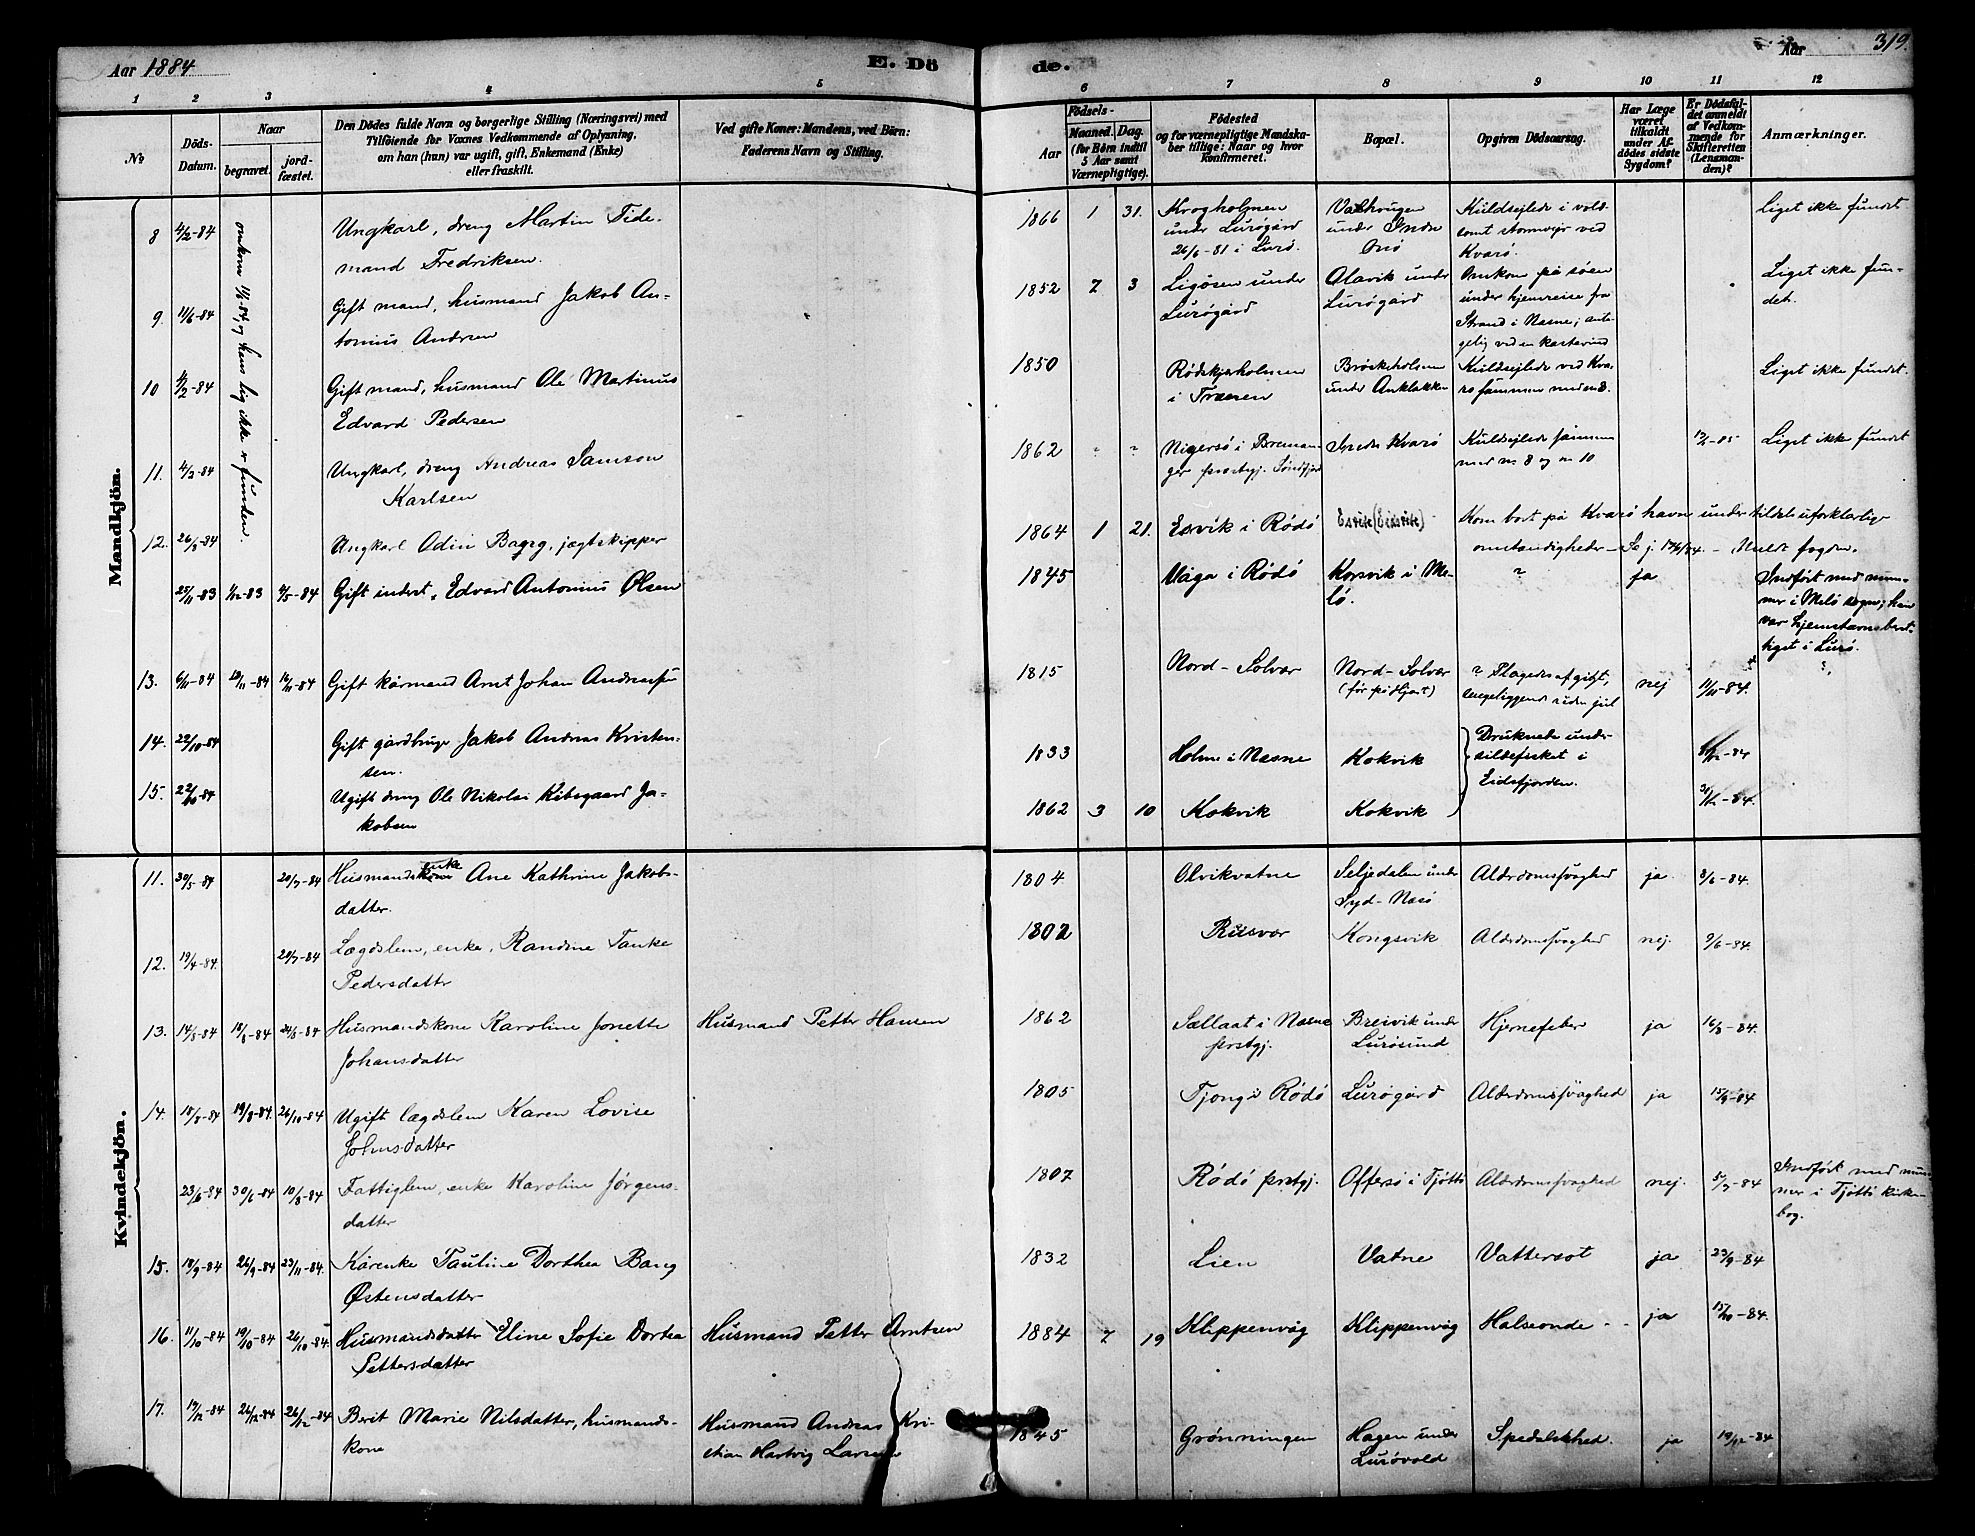 Aar 1884
E. Dö
de.
Aar
319.
1 2 3 4 5 6 7 8 9 10 11 12
No
Döds-
Datum.
Naar
begravet.
jord-
fæstet.
Den Dödes fulde Navn og borgerlige Stilling (Næringsvei) med
Tilföiende for Voxnes Vedkommende af Oplysning,
om han (hun) var ugift, gift, Enkemand (Enke)
eller fraskilt.
Ved gifte Koner: Mandens, ved Börn:
Faderens Navn og Stilling.
Födsels-
Aar
Maaned. Dag.
(for Börn indtil
5 Aar samt
Værnepligtige).
Födested
og for værnepligtige Mandska-
ber tillige: Naar og hvor
Konfirmeret.
Bopæl.
Opgiven Dödsaarsag.
Har Læge
været
tilkaldt
under Af-
dödes sidste
Sygdom?
Er Dödsfal-
det anmeldt
af Vedkom-
mende for
Skifteretten
(Lensman-
den)?
Anmærkninger.
Mandkjön.
omkom 11/6-84, og hens lig ikke er funden.
8 4/2-84 Ungkarl, dreng Martin Tide-
mand Fredriksen.
1866 1 31. Krogholmen
under Lurøgård
26/6-81 i Lurø.
under Indre
Kuldsejlede i vold-
somt stormvejr ved
Kvarø.
Liget ikke fundet
9. 11/6-84 Gift mand, husmand Jakob An-
tonius Andersen
1852 7 3 Ligøsen under
Lurøgård
Olavik under
Lurøgård
Omkom på søen
under hjemreise fra
Strand i Nesne; anta-
gelig ved en kastevind
Liget ikke fun-
det.
10 4/2-84 Gift mand, husmand Ole Martinus
Edvard Pedersen
1850 Rødskjærholmen
i Trænen
Brøskeholmen
under Anklakken
Kuldsejlede ved Kva-
rø sammen med no 8.
Liget ikke fundet.
11. 4/2-84 Ungkarl, dreng Andreas Samson
Karlsen
1862 " " Nigersø i Breman-
ger prestgj. Søndfjord
Indre Kvarø
Kuldsejlede sammen
med no 8 og no 10
Liget ikke fundet
12. 26/3-84 Ungkarl Odin Bagøg, jægtskipper
1864 1 21. Esvik i Rødø
Kom bort på Kvarø havn under tildels uforklarlige
omstændigheder
25/11-83 1/12-83 4/5-84 Gift inderst, Edvard Antonius Olsen
1845 Våga i Rødø Korsvik i Me-
lø. ? ja
Indført med num-
mer i Melø sogn; han
var hjemstavnsberet-
tiget i Lurø.
13. 6/11-84 10/11-84 16/11-84 Gift kårmand Arnt Johan Andreassen
1815 Nord-Solvær Nord-Solvær
(før på Hjart)
? Plagedes af gigt,
sengeliggende siden jul
nej 11/11-84. ?
14. 22/10-84 Gift gårdbruger Jakob Andreas Kristen-
sen.
1833 Holme i Nesne Kokvik
Druknede under
sildefisket i
Eidsfjorden.
15. 22/10-84 Ugift dreng Ole Nikolai Kibsgaard Ja-
kobsen
1862 3 10 Kokvik Kokvik
Kvindekjön.
11. 30/5-84 20/7-84 Husmandsenke Ane Kathrine Jakobs-
datter.
1804 Olvikvatne Seljedalen under
Syd-Nesø
Alderdomssvaghed ja 8/6-84.
12. 19/4-84. 20/7-84 Lægdslem, enke, Randine Tanke
Pedersdatter
1802 Rusvær Kongsvik Alderdomssvaghed nej. 9/6-84.
13. 14/8-84 18/8-84 24/8-84 Husmandskone Karoline Jonette
Johansdatter
Husmand Petter Hansen
1862 Sællaat i Nesne
prstgj.
Breivik under
Lurøsund
Hjernefeber ja 16/8-84.
14. 18/8-84 19/8-84. 26/10-84 Ugift lægdslem Karen Lovise
Johnsdatter
1805 Tjong i Rødø Lurøgård Alderdomssvaghed ja 15/9-84
23/6-84 30/6-84 10/8-84 Fattiglem, enke Karoline Jørgens-
datter
1807 Rødø prstgj. Offersø i Tjøtta Alderdomssvaghed nej. 5/7-84
Indført med num-
mer i Tjøtta kirke-
bog.
15. 18/9-84 26/9-84 23/11-84. Kårenke Pauline Dorthea Bang
Østensdatter
1832 Lien Vatne Vattersot ja 23/9-84
16. 11/10-84 19/10-84 26/10-84. Husmandsdatter Eline Sofie Dortea
Pettersdatter
Husmand Petter Arntsen
1884 7 19 Klippenvåg Klippenvåg Halseonde ja 15/10-84.
17. 19/12-84 26/12-84 26/12-84 Berit Marie Nilsdatter, husmands-
kone
Husmand Andreas Kri-
stian Hartvig Larsen
1845 Grønningen Hagen under
Lurøvold
Spedalskhed. ja 19/12-84